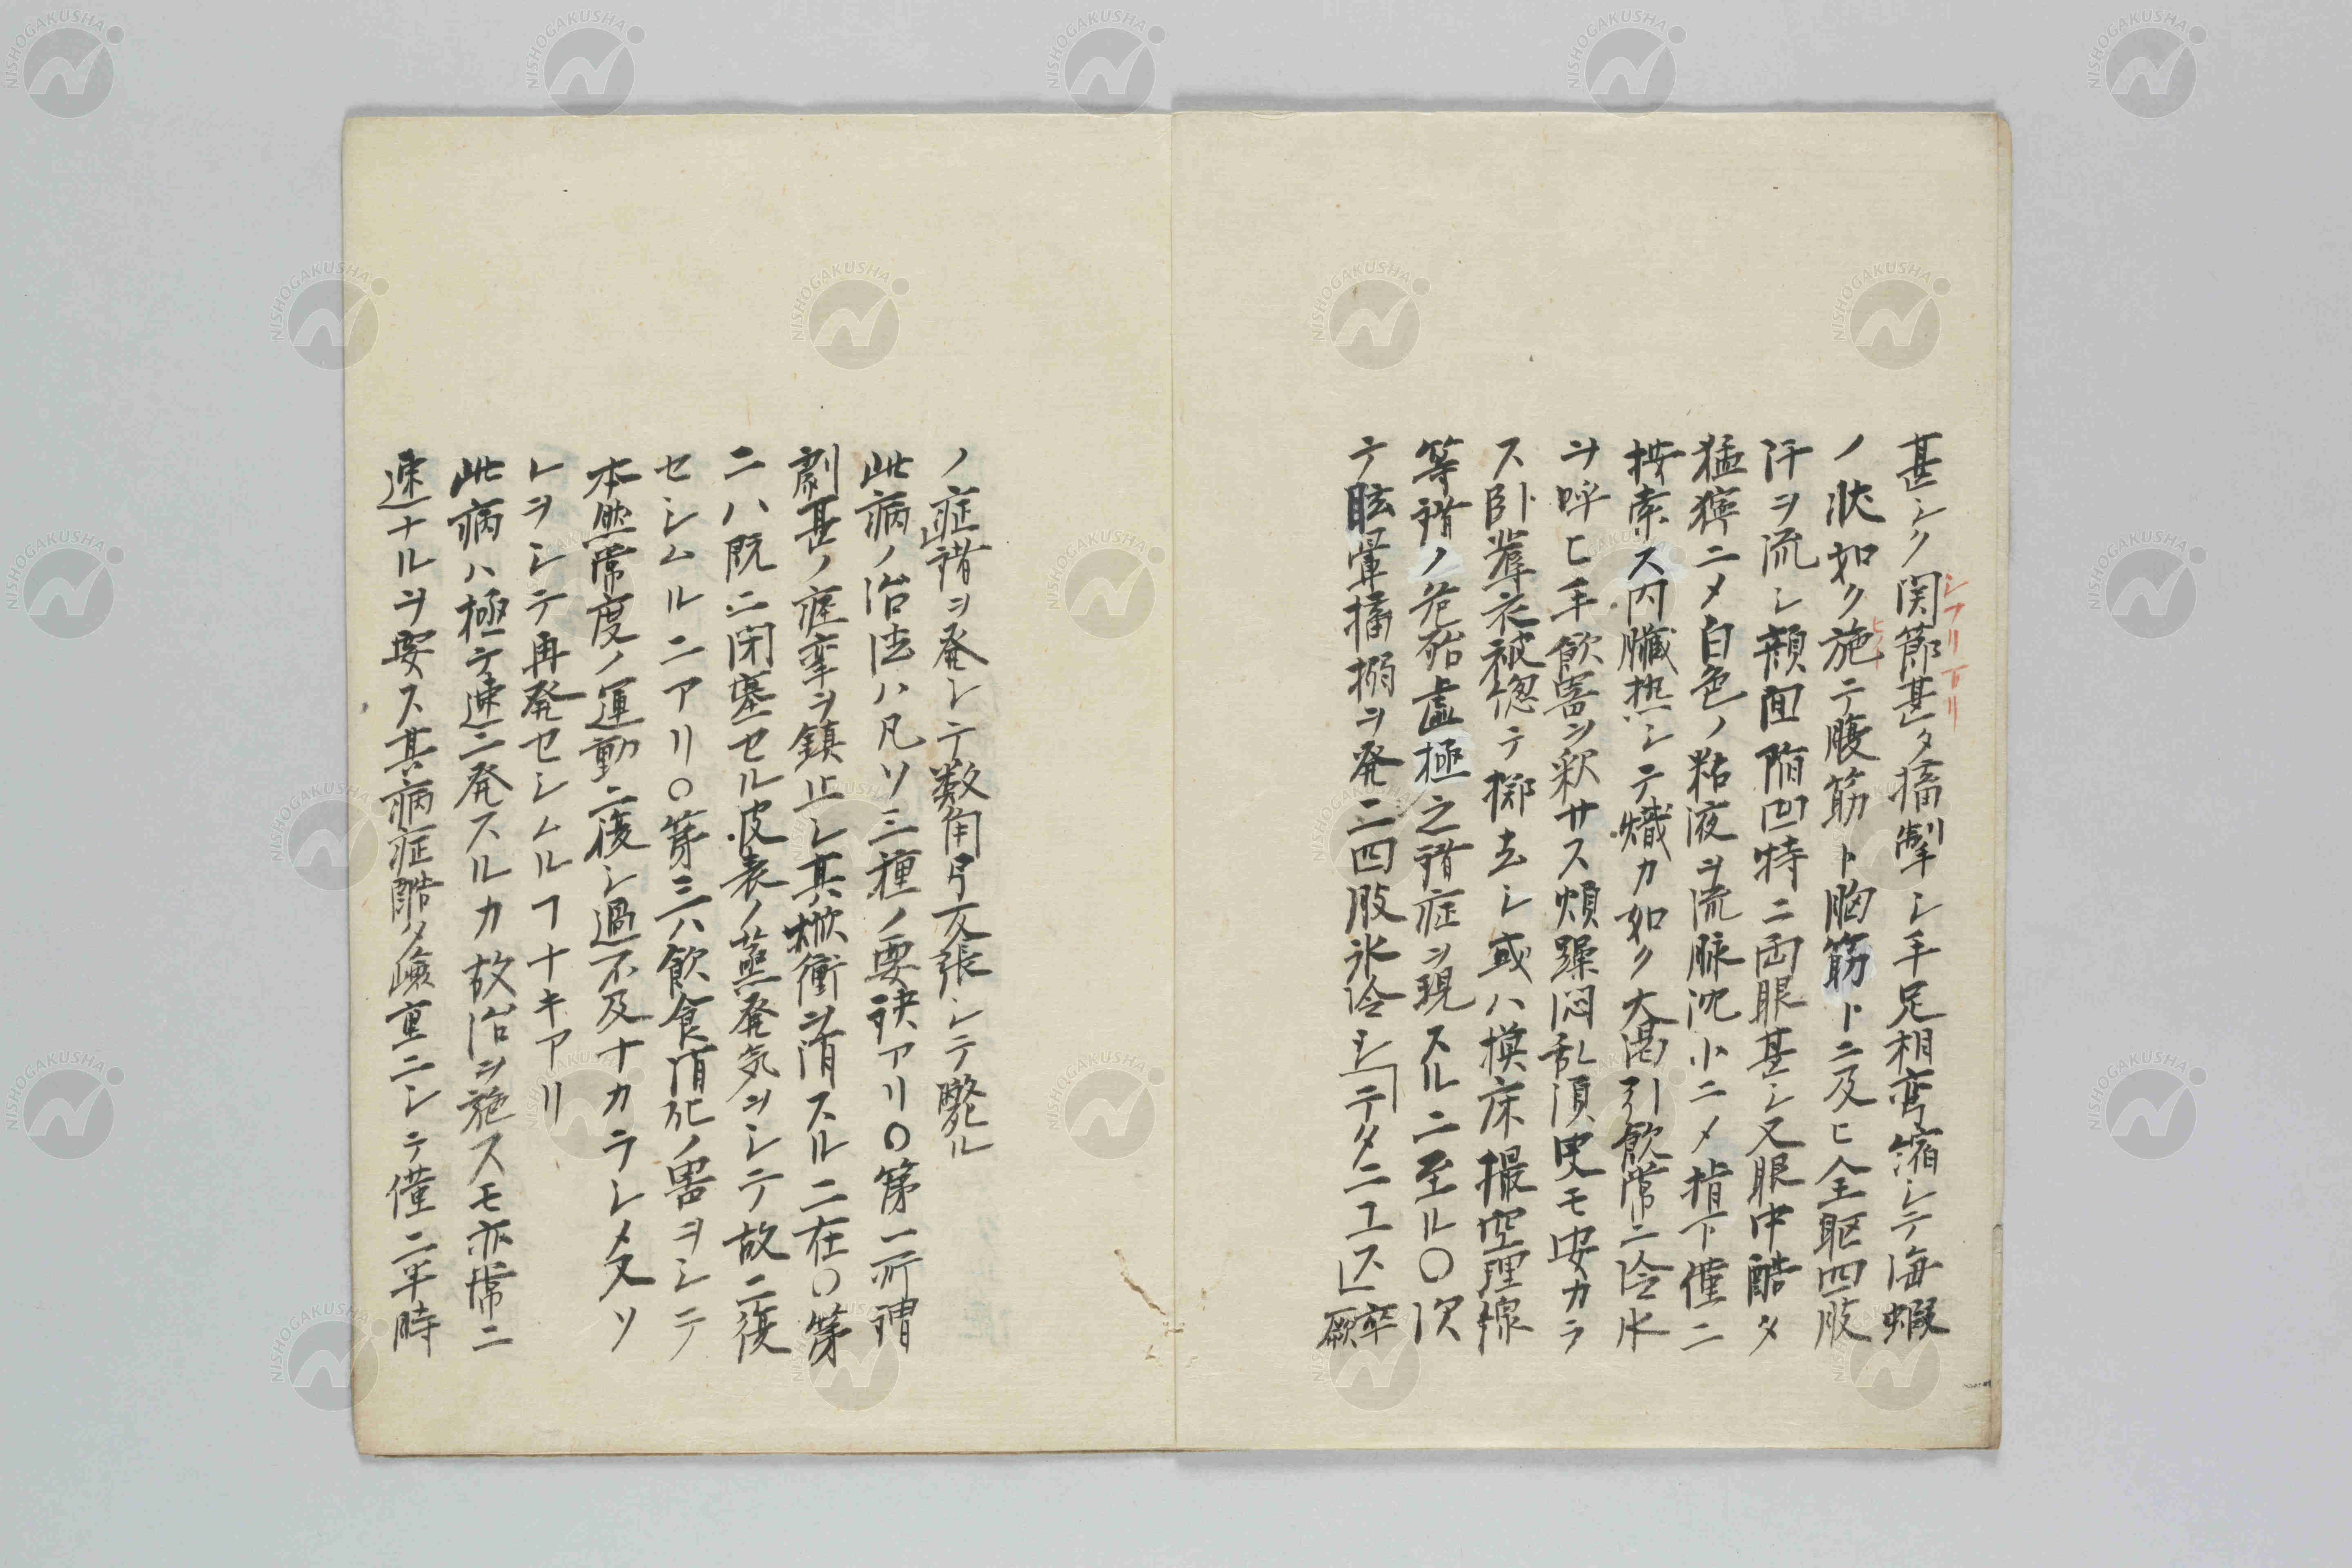 甚シク関節甚タ搐掣シ手足相弯縮シテ海蝦
シフリ下リ
ノ状如ク施テ腹筋ト胸筋トニ及ヒ全躯四肢
ヒイテ
汗ヲ流シ顔面陷凹特ニ両眼甚シ又眼中酷タ
猛獰ニメ白色ノ粘液ヲ流脉沈小ニメ指下僅ニ
按索ス内臟热シテ熾カ如ク大渇引飲常ニ冷水
ヲ呼ヒ手飲器ヲ釈サス煩躁悶乱湏臾モ安カラ
ス卧蓐衣被惚テ擲去シ或ハ摸床撮空理線
等諸ノ危殆虚極之諸症ヲ現スルニ至ル〇次
テ眩暈搐搦ヲ発ニ四肢氷冷シテタニユス卒厥
ノ症諸ヲ発シテ数角弓反張シテ斃ル
此病ノ治法ハ凡ソ三種ノ要訣アリ〇第一所謂
劇甚ノ痙挛ヲ鎮止シ其焮衝ヲ消スルニ在〇第
二ハ既ニ閉塞セル皮表ノ蒸発気ヲシテ故ニ復
セシムルニアリ〇第三ハ飲食消化ノ器ヲシテ
本然常度ノ運動ニ復シ過不及ナカラシメ又ソ
レヲシテ再発セシムルヿナキアリ
此病ハ極テ速ニ発スルカ故治ヲ施スモ亦常ニ
速ナルヲ要ス其病症酷タ嶮重ニシテ僅ニ半時